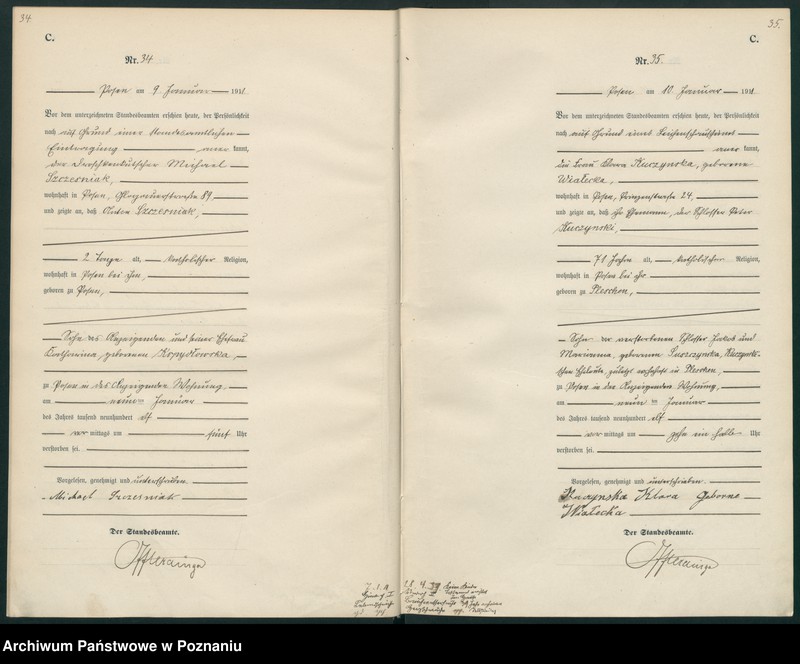 34.
C.
Nr. 34
Posen am 9. Januar 1911
Vor dem unterzeichneten Standesbeamten erschien heute, der Persönlichkeit
nach auf Grund einer standesamtlichen
Eintragung aner kannt,
der Droschkenkutscher Michael
Szczesniak,
wohnhaft in Posen, Glogauerstraße 89,
und zeigte an, daß Anton Szczesniak,
2 Tage alt, katholischer Religion,
wohnhaft in Posen bei ihm,
geboren zu Posen,
Sohn des Anzeigenden und seiner Ehefrau
Katharina, geborenen Kopydłowska,
zu Posen in des Anzeigenden Wohnung,
am neunten Januar
des Jahres tausend neunhundert elf
vor mittags um fünf Uhr
verstorben sei.
Vorgelesen, genehmigt und unterschrieben.
Michael Szczesniak
Der Standesbeamte.
35.
C.
Nr. 35.
Posen am 10. Januar 1911
Vor dem unterzeichneten Standesbeamten erschien heute, der Persönlichkeit
nach auf Grund eines Leichenschauscheins
aner kannt,
die Frau Klara Kuczynska, geborene
Wiałecka,
wohnhaft in Posen, Prinzenstraße 24,
und zeigte an, daß ihr Ehemann, der Schlosser Peter
Kuczynski,
71 Jahre alt, katholischer Religion,
wohnhaft in Posen bei ihr
geboren zu Pleschen,
Sohn der verstorbenen Schlosser Jakob und
Marianna, geborenen Kuczynski
schen Eheleute, zuletzt wohnhaft in Pleschen,
zu Posen in der Anzeigenden Wohnung,
am neunten Januar
des Jahres tausend neunhundert elf
vor mittags um zehn ein halb Uhr
verstorben sei.
Vorgelesen, genehmigt und unterschrieben.
Kuczynska Klara geborene
Wiałecka
Der Standesbeamte.
Archiwum Państwowe w Poznaniu